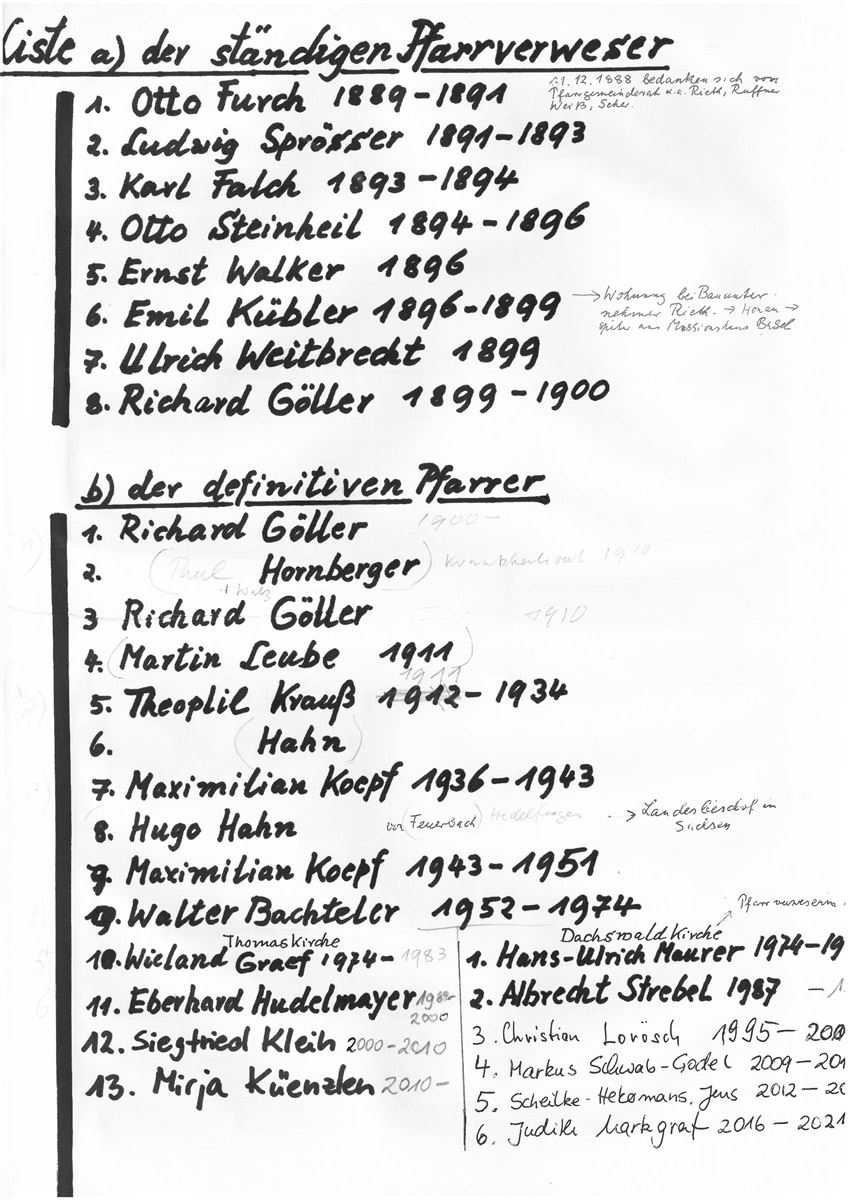 Liste a) der ständigen Pfarrverweser
1. Otto Furch 1889-1891
1.12.1888 bedanken sich vom
Pfarrgemeinderat u.a. Rieth, Ruffner
Weiß, Scher.
2. Ludwig Sprösser 1891-1893
3. Karl Falch 1893-1894
4. Otto Steinheil 1894-1896
5. Ernst Walker 1896
6. Emil Kübler 1896-1899
→ Wohnung bei Bauunter-
nehmer Rieth. → Honau →
später am Missionshaus Basel
7. Ulrich Weitbrecht 1899
8. Richard Göller 1899-1900
b) der definitiven Pfarrer
1. Richard Göller 1900-
2. (Paul Hornberger) 1910
3 Richard Göller - 1910
4. (Martin Leube 1911)
1911
5. Theoplil Krauß 1912-1934
6. (Hahn)
7. Maximilian Koepf 1936-1943
8. Hugo Hahn von (Feuerbach) Hedelfingen → Landesbischof in
Sachsen
9. Maximilian Koepf 1943-1951
9. Walter Bachteler 1952-1974
Pfarrverweserin.
Thomaskirche
10. Wieland Graef 1974-1983
11. Eberhard Hudelmayer
2000
12. Siegfried Kleih 2000-2010
13. Mirja Küenzlen 2010-
Dachswaldkirche
1. Hans-Ulrich Maurer 1974-19
2. Albrecht Strebel 1987 -1
3. Christian Lorösch 1995-200
4. Markus Schwab-Godel 2009-201
5. Scheilke-Hekomans, Jens 2012-20
6. Judith Markgraf 2016-2021